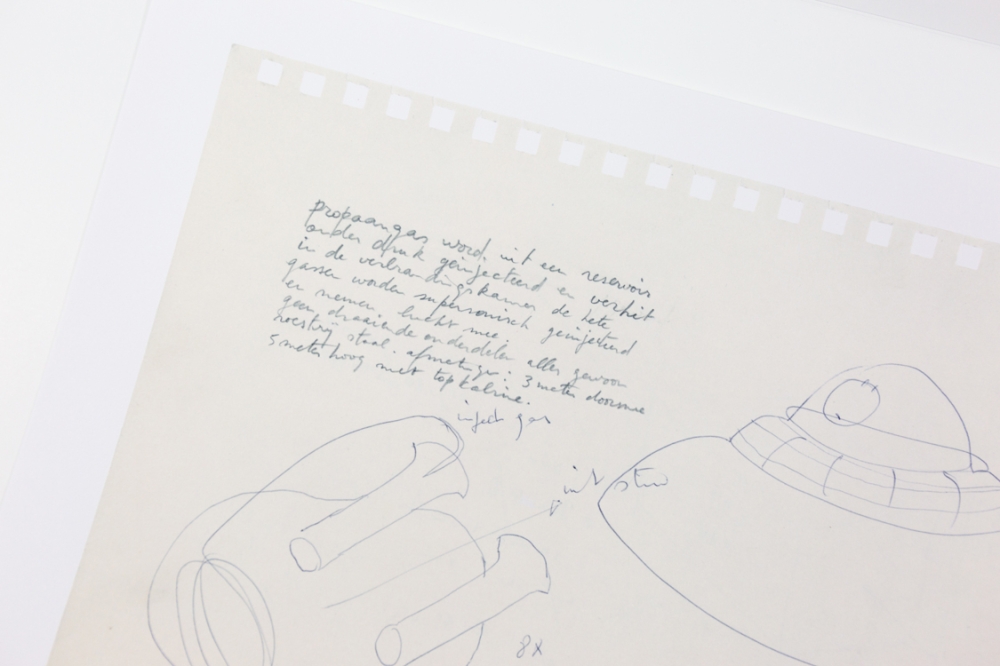 propaangas word uit een reservoir
onder druk geinjecteerd en verhit
in de verbrandingskamer de hete
gassen worden supersonisch geinjecteerd
en nemen lucht mee.
geen draaiende onderdelen alles gewoon
roestvrij staal. afmetingen: 3 meter doorsnee
5 meter hoog met top kabine.
inject gas
8x